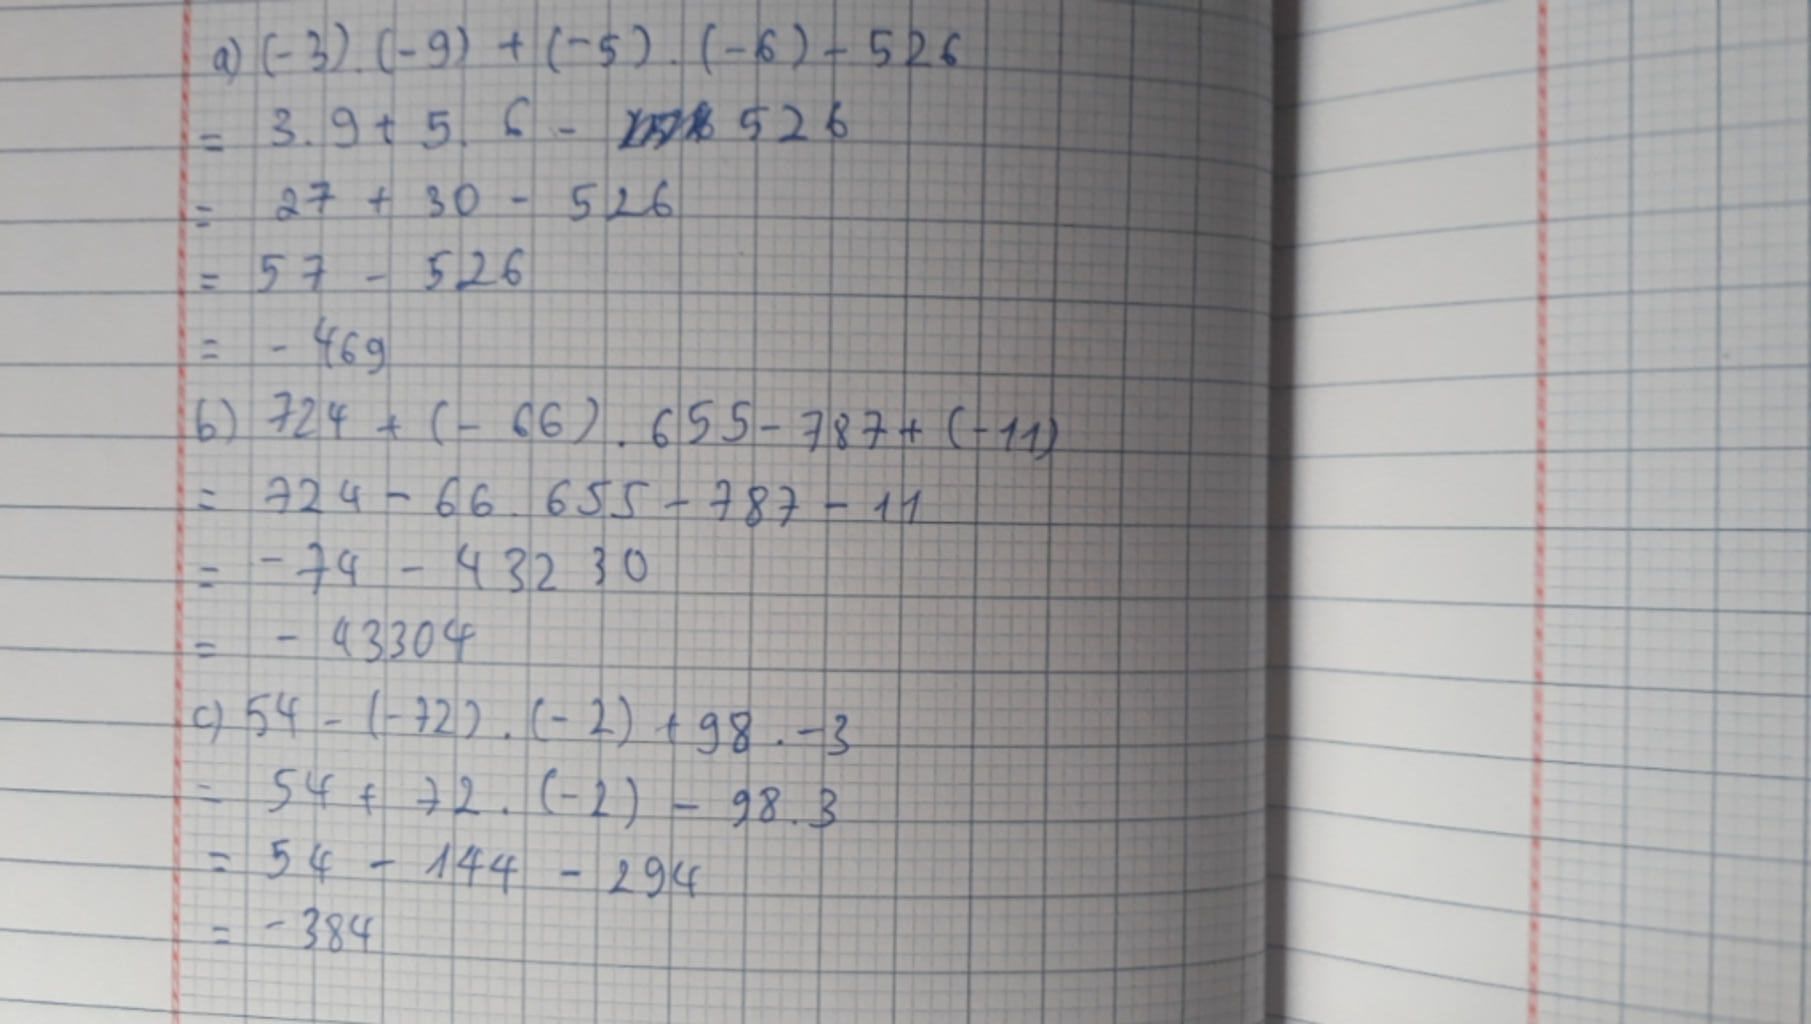 a) (-3).(-9) + (-5).(-6) - 526
= 3.9 + 5.6 - 526
= 27 + 30 - 526
= 57 - 526
= - 469
b) 724 + (-66).655 - 787 + (-11)
= 724 - 66.655 - 787 - 11
= -74 - 43230
= - 43304
c) 54 - (-72).(-2) + 98.-3
= 54 + 72.(-2) - 98.3
= 54 - 144 - 294
= -384